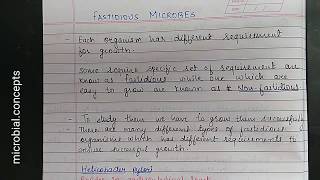 FASTIDIOUS MICROBES
- Each organism has different requirement
for growth.
Some require specific set of requirement are
know as fastidious while one which are
easy to grow are known as Non-fastidious
- To study them we have to grow them successfull
There are many different types of fastidious
organisms which has different requirements to
ensure successful growth.
Helicobacter pylori
microbial.concepts